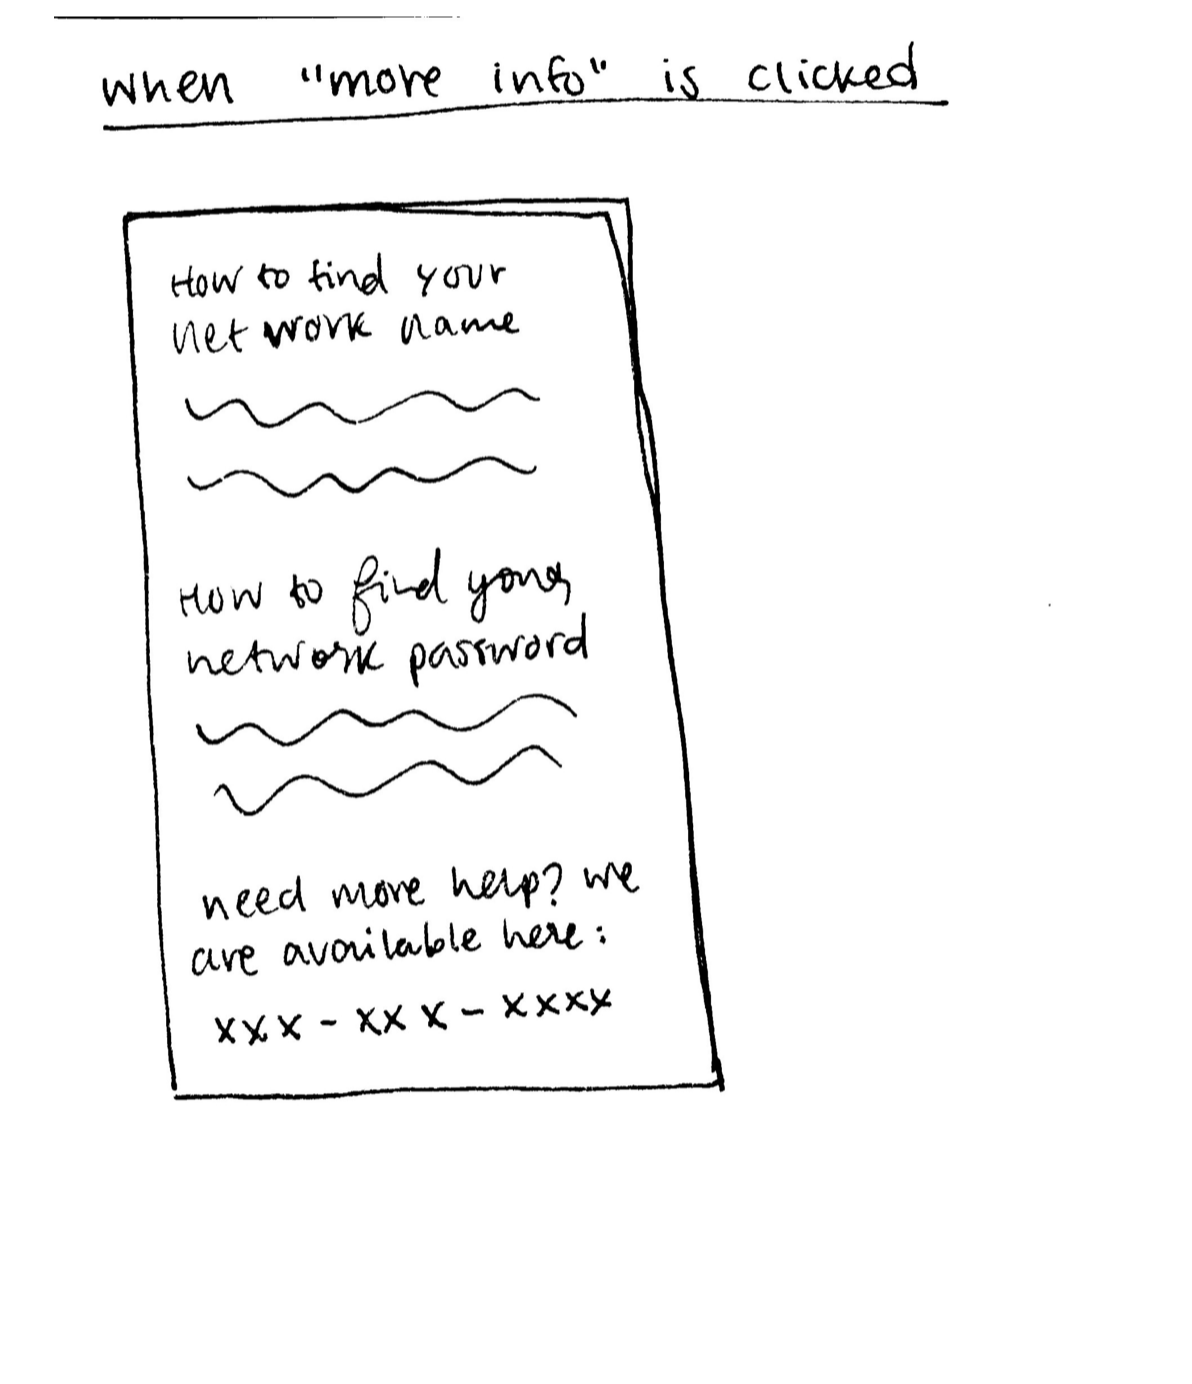 when "more info" is clicked
How to find your
network name
How to find your
network password
need more help? we
are available here:
xxx - xxx - xxxx